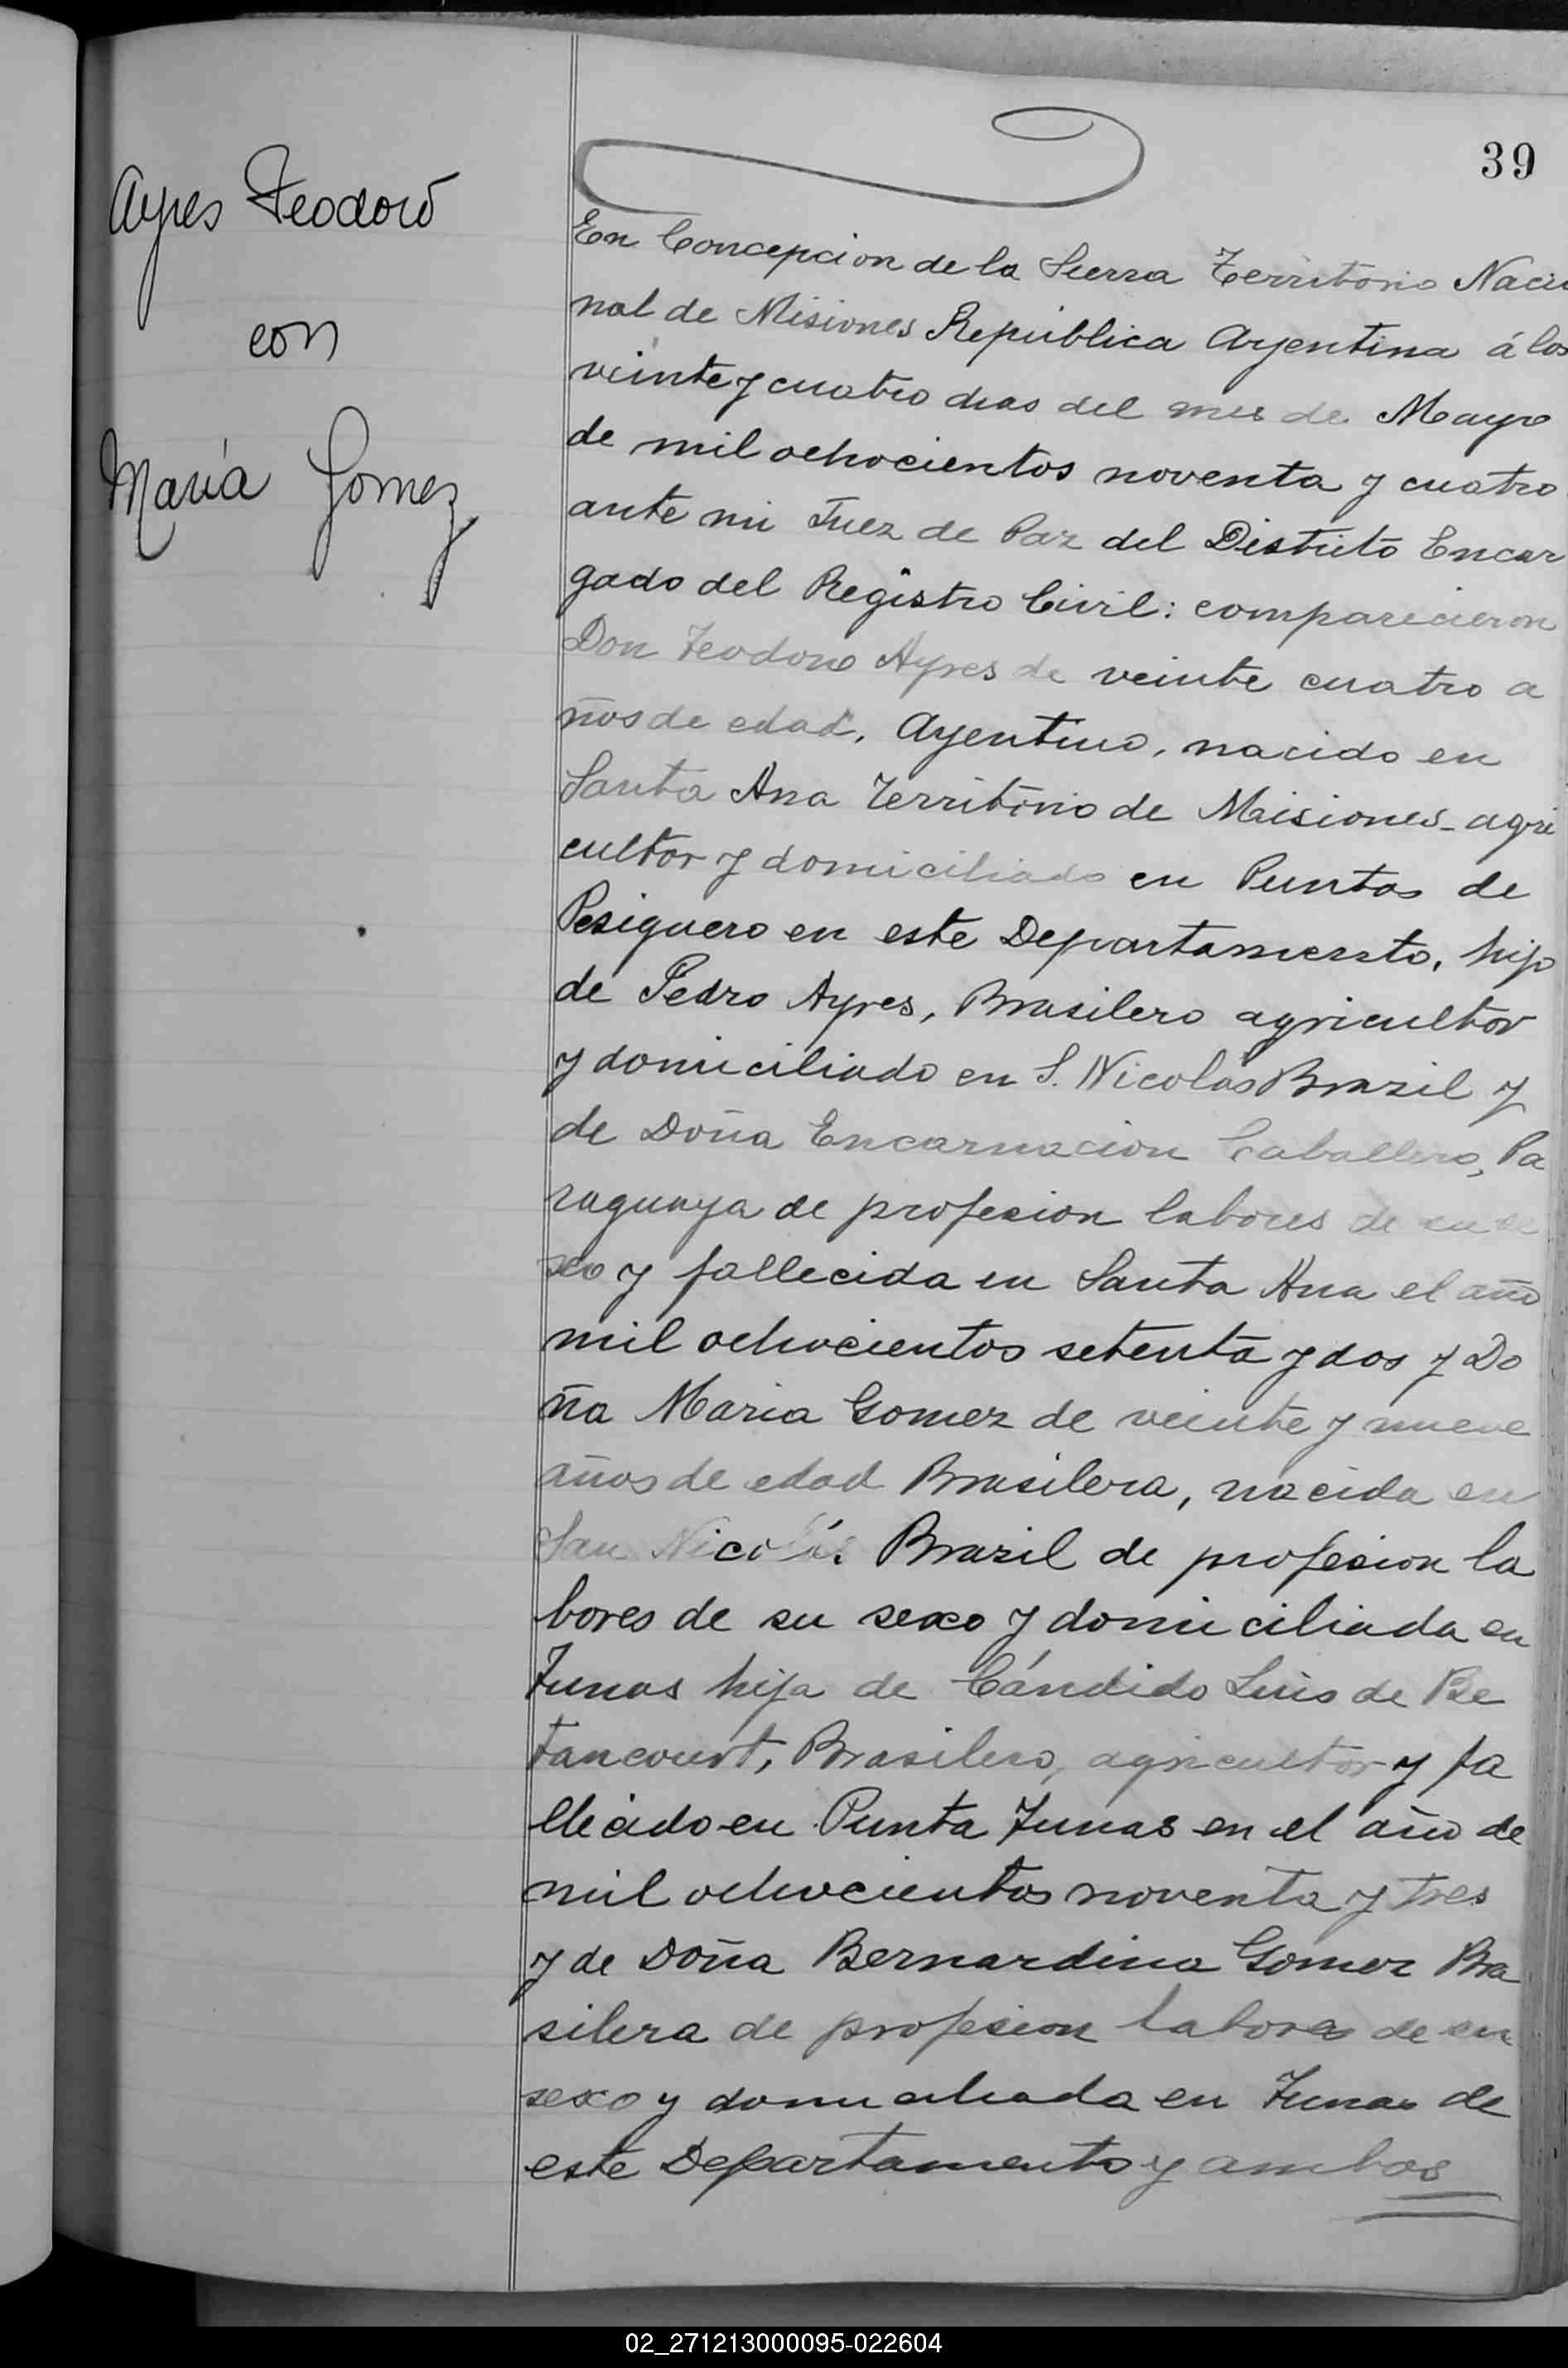 39
Ayres Teodoro
con
María Gomez
En Concepcion de la Sierra Territorio Nacio
nal de Misiones República Argentina á los
veinte y cuatro dias del mes de Mayo
de mil ochocientos noventa y cuatro
ante mi Juez de Paz del Distrito Encar
gado del Registro Civil: comparecieron
Don Teodoro Ayres de veinte cuatro a
ños de edad, Argentino, nacido en
Santa Ana Territorio de Misiones agri
cultor y domiciliado en Puntas de
Pesiguero en este Departamento, hijo
de Pedro Ayres, Brasilero agricultor
y domiciliado en S. Nicolás Brazil y
de Doña Encarnacion Caballero, Pa
raguaya de profesion labores de su se
xo y fallecida en Santa Ana el año
mil ochocientos setenta y dos y Do
ña Maria Gomez de veinte y nueve
años de edad Brasilera, nacida en
San Nicolás Brazil de profesion la
bores de su sexo y domiciliada en
Tunas hija de Cándido Luis de Be
tancourt, Brasilero, agricultor y fa
llecido en Punta Tunas en el año de
mil ochocientos noventa y tres
y de Doña Bernardina Gomez Bra
silera de profesion labores de su
sexo y domiciliada en Tunas de
este Departamento y ambos
02_271213000095-022604